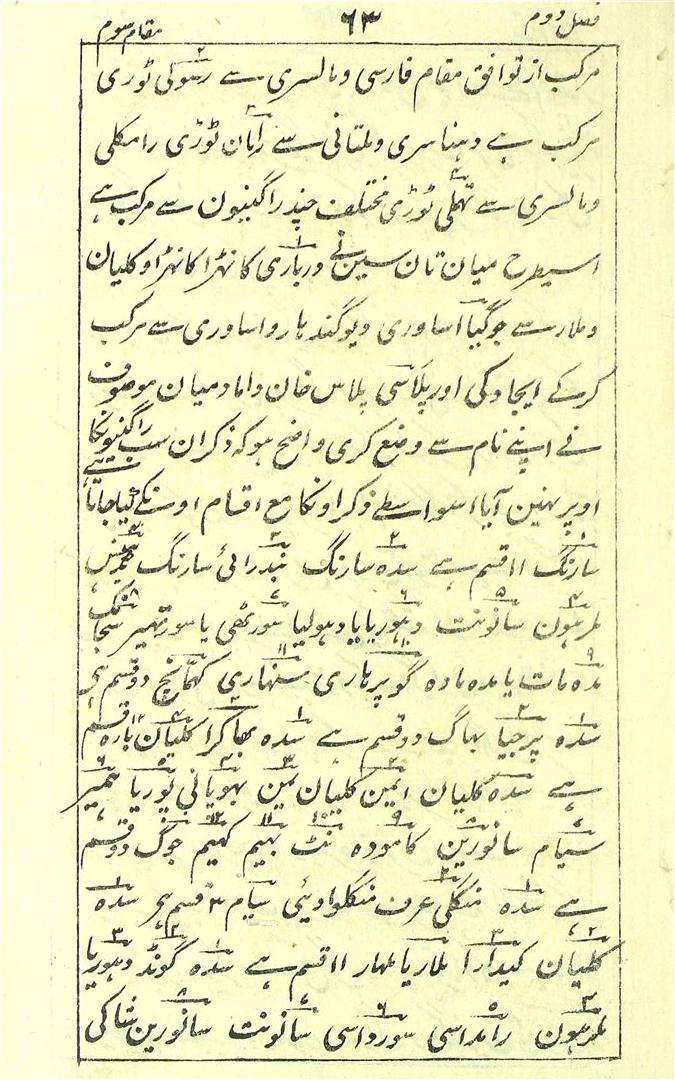 فصل دوم ۶۳ مقام سوم
مرکب از توافق مقام فارسی و مالسری سے رسولی ٹوری
مرکب ہے دہناسری و ملتانی سے رامان ٹوڑی رامکلی
و مالسری سے ٹہلی ٹوڑی مختلف چند راگنیون سے مرکب ہے
اسیطرح میان تان سین نے درباری کانہڑا کانہڑا و کلیان
و ملار سے جوگیا اساوری دیوگندہار و اساوری سے مرکب
کرکے ایجاد کی اور پلاسی پلاس خان داماد میان موصوف
نے اپنے نام سے وضع کری واضح ہو کہ ذکر ان سب راگنیونکا
اوپر نہین آیا اسواسطے ذکر اونکا مع اقسام اونکے کیا جاتا ہے
سارنگ ۱۱ قسم ہے سدہ سارنگ بندرائی سارنگ
سانونت دہوریا یا دہولیا سورٹھی یا سور
مدہ مات یا مدہ مادہ گوپرہاری سنہاری کہماچ دو قسم ہی
سدہ پرجیا بہاگ دو قسم ہے سدہ بہاکرا کلیان بارہ قسم
ہے سدہ کلیان ایمن کلیان یمن بہوپالی پوریا ہمیر
سیام سانورین کامودہ نٹ بہیم کہیم جوگ دو قسم
ہے سدہ منگلی عرف منگلوادیئی سیام ۳ قسم ہی سدہ
کلیان کیدارا ملار یا ملہار ۱۱ قسم ہے سدہ گونڈ دہوریا
رامداسی سورداسی سانونت سانورین